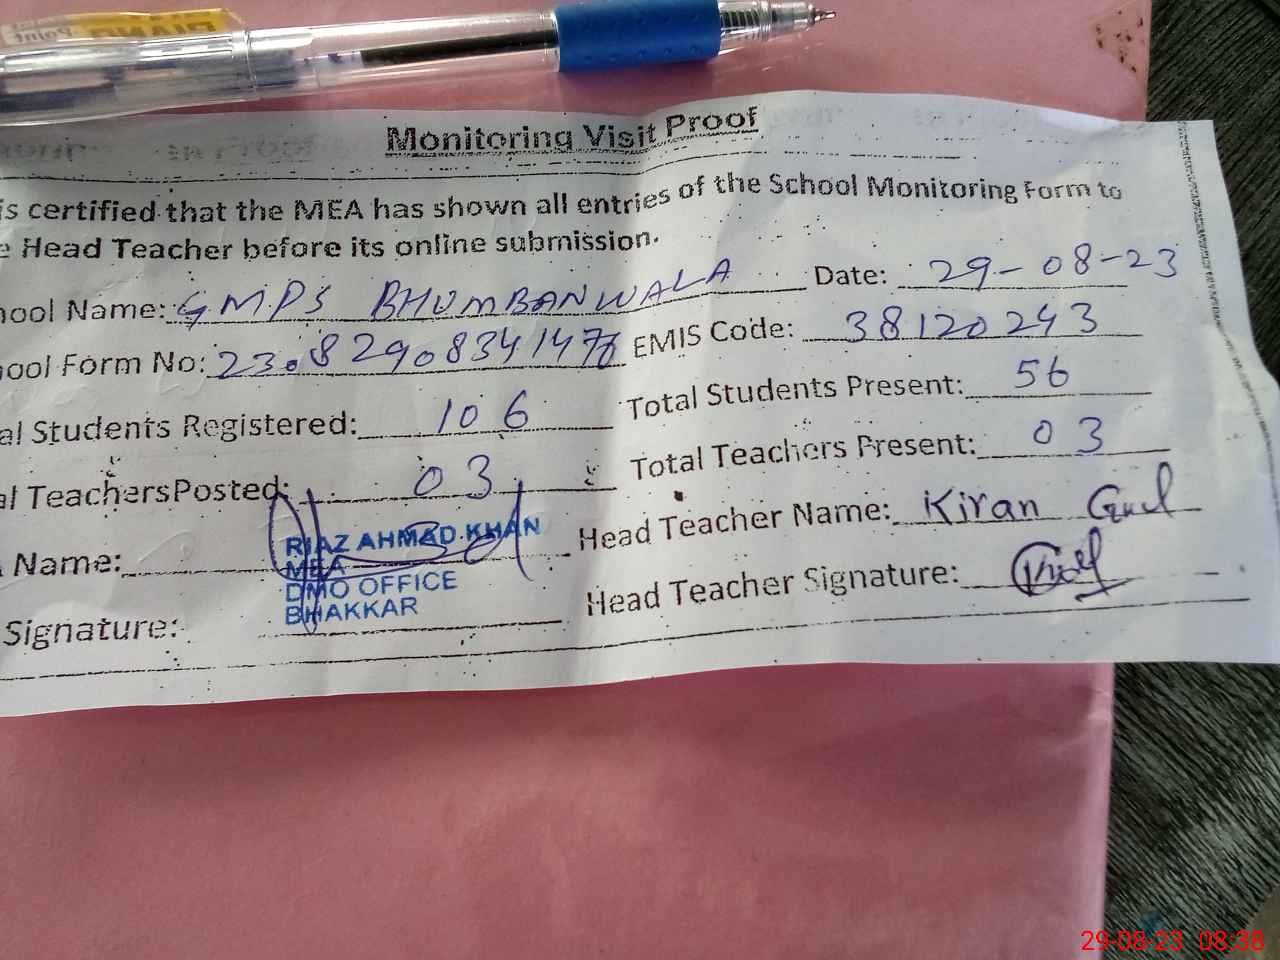 PIANO
Point
Monitoring Visit Proof
is certified that the MEA has shown all entries of the School Monitoring Form to
e Head Teacher before its online submission.
hool Name: GMPS BHUMBANWALA Date: 29-08-23
hool Form No: EMIS Code: 38120243
al Students Registered: 106 Total Students Present: 56
al Teachers Posted: 03 Total Teachers Present: 03
Name: RIAZ AHMAD KHAN Head Teacher Name: Kiran Gul
MEA
DMO OFFICE
BHAKKAR
Signature: Head Teacher Signature:
29-08-23 08:38